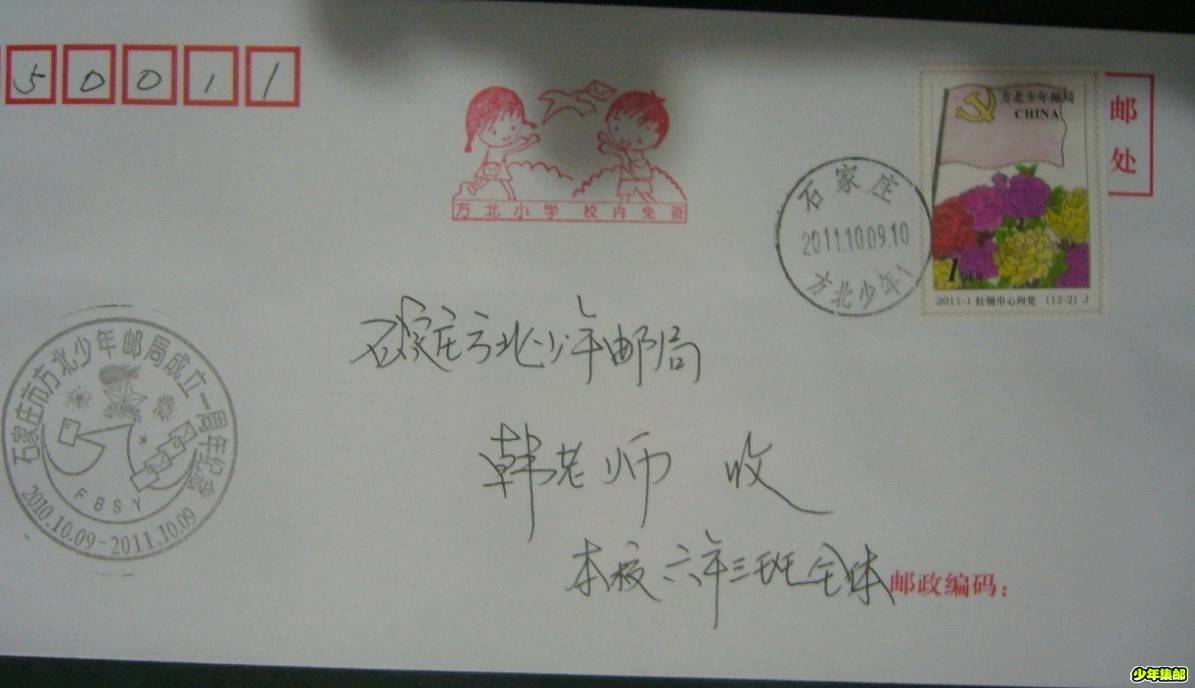 50011
方北小学 校内免资
方北少年邮局
CHINA
邮
处
石家庄
2011.10.09.10
方北少年1
1
2011-1 红领巾心向党 (12-2) J
石家庄方北少年邮局
韩老师 收
本校六年三班全体
邮政编码：
石家庄市方北少年邮局成立一周年纪念
FBSY
2010.10.09-2011.10.09
少年集邮